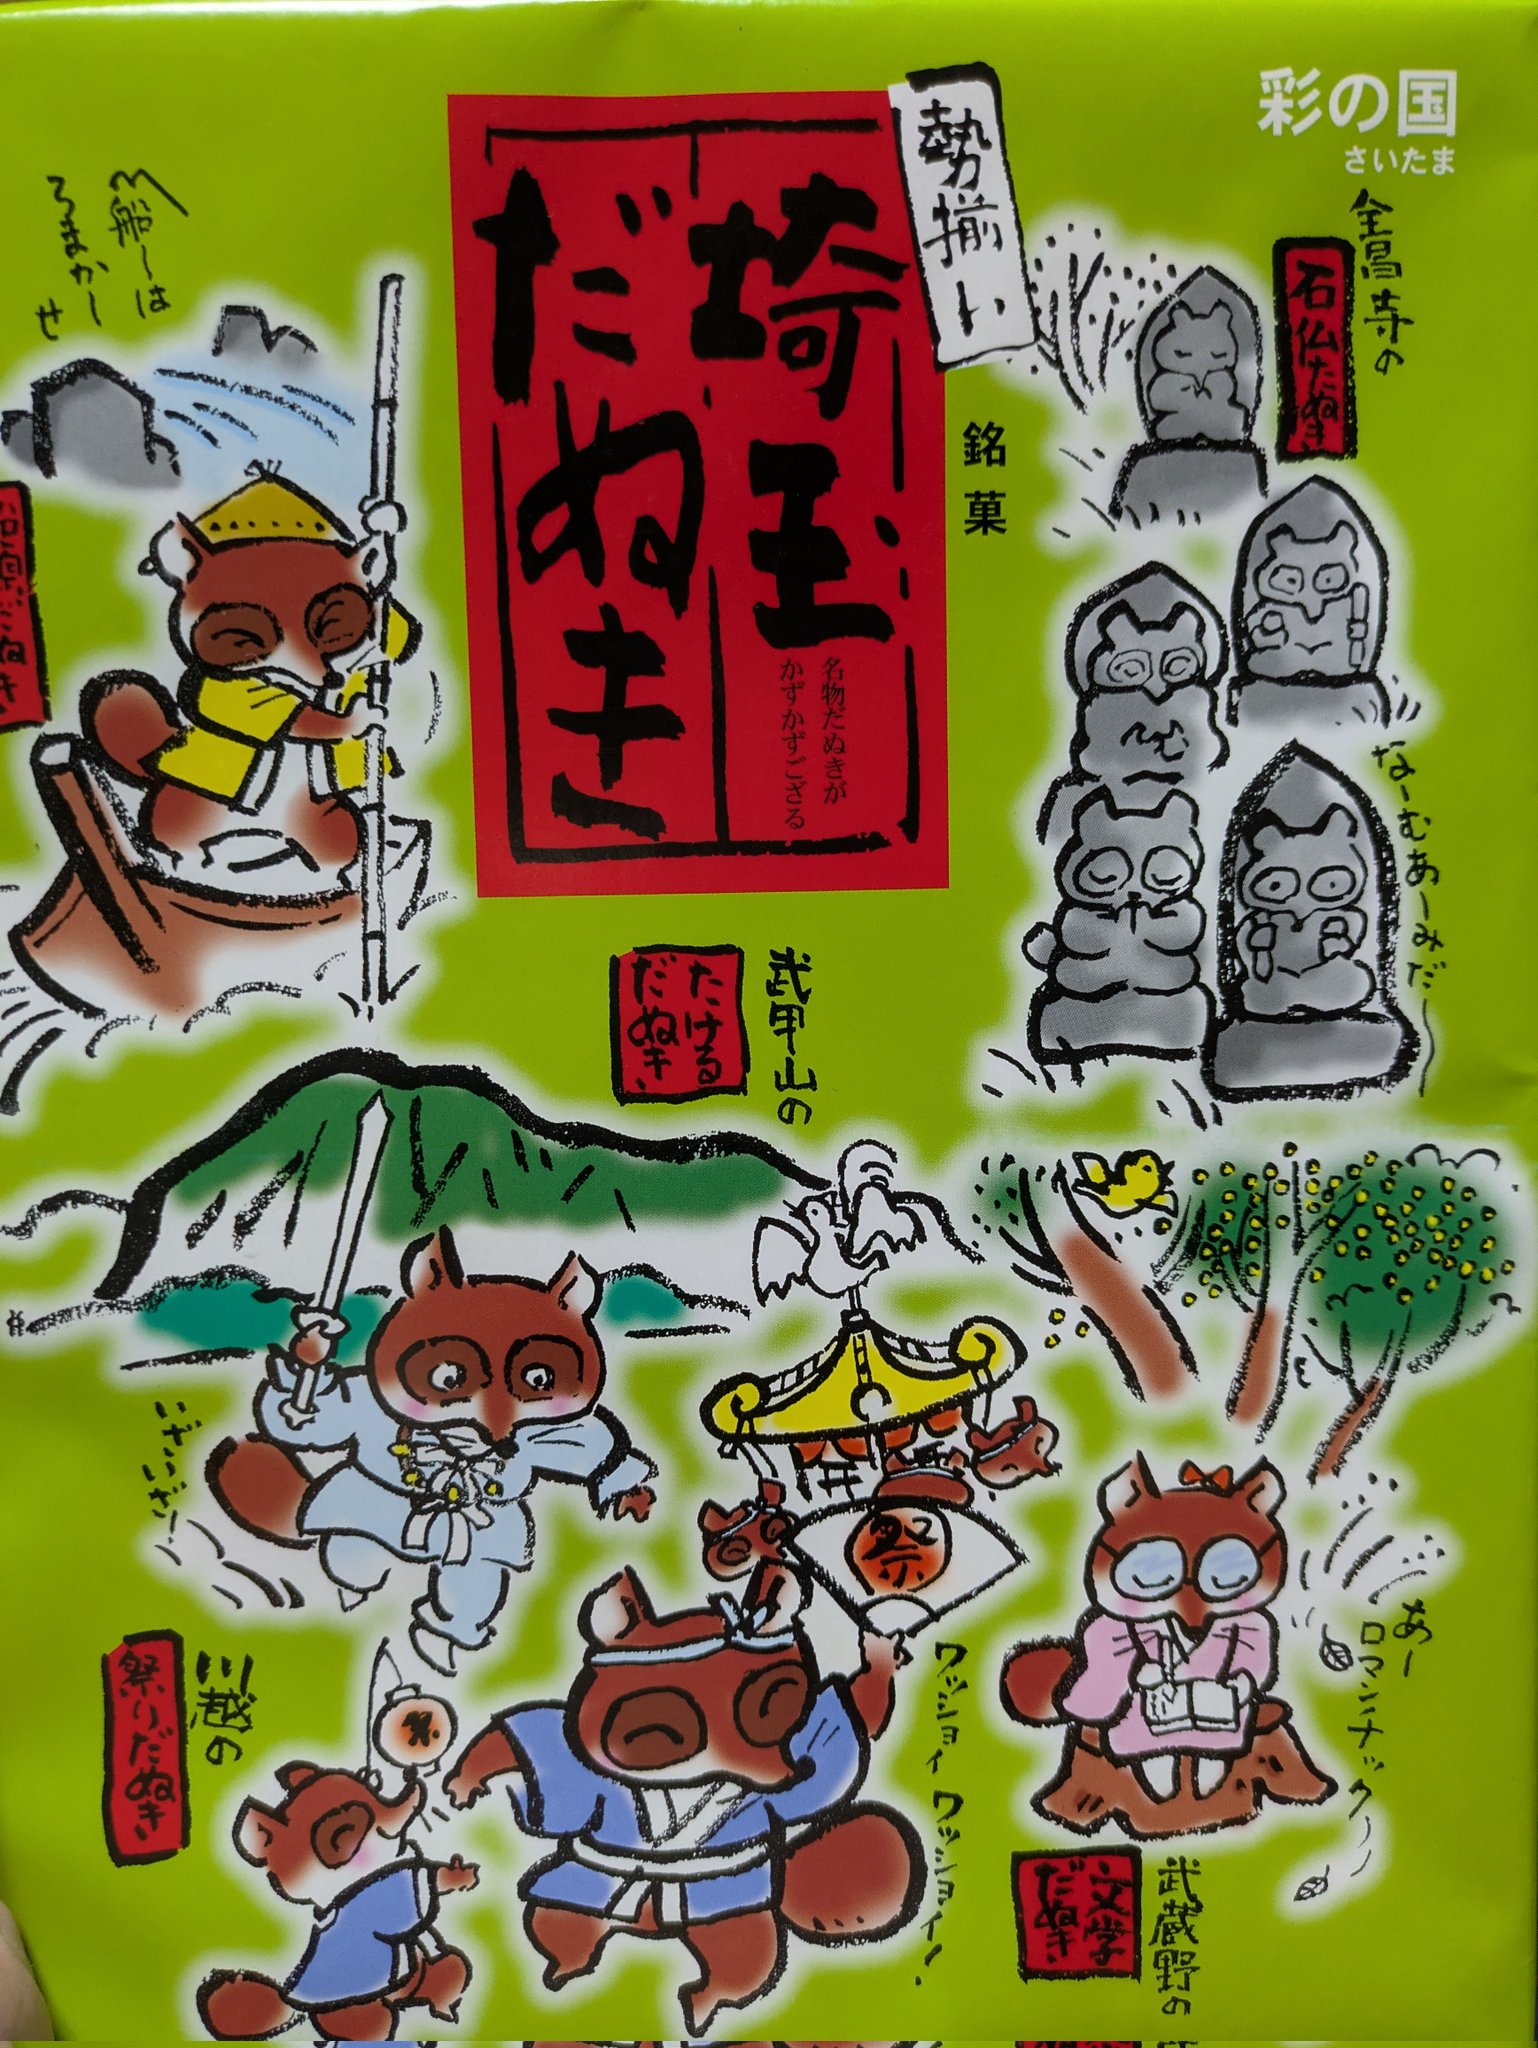 彩の国
さいたま
勢揃い
埼玉
だぬき
名物だぬきが
かずかずござる
銘菓
全昌寺の
石仏たぬき
なーむあーみだ〜
むむ
船〜は
ろまかー
せ
武甲山の
たける
だぬき
いざいざー
祭
川越の
祭りだぬき
祭
ワッショイ ワッショイ!
あー
ロマンチック〜
武蔵野の
文学
だぬき